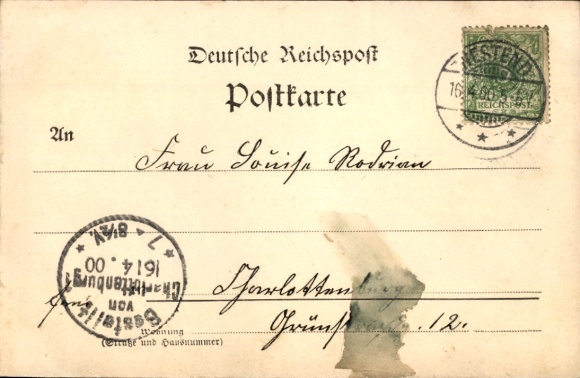 Deutsche Reichspost
Postkarte
WESTEND
16.4.00.5-6N.
REICHSPOST
An
Frau Louise Rodrian
Charlottenburg
Grünstraße 12.
Wohnung
(Straße und Hausnummer)
Bestellt
von
Charlottenburg 2
16/4.00
7-8½V.